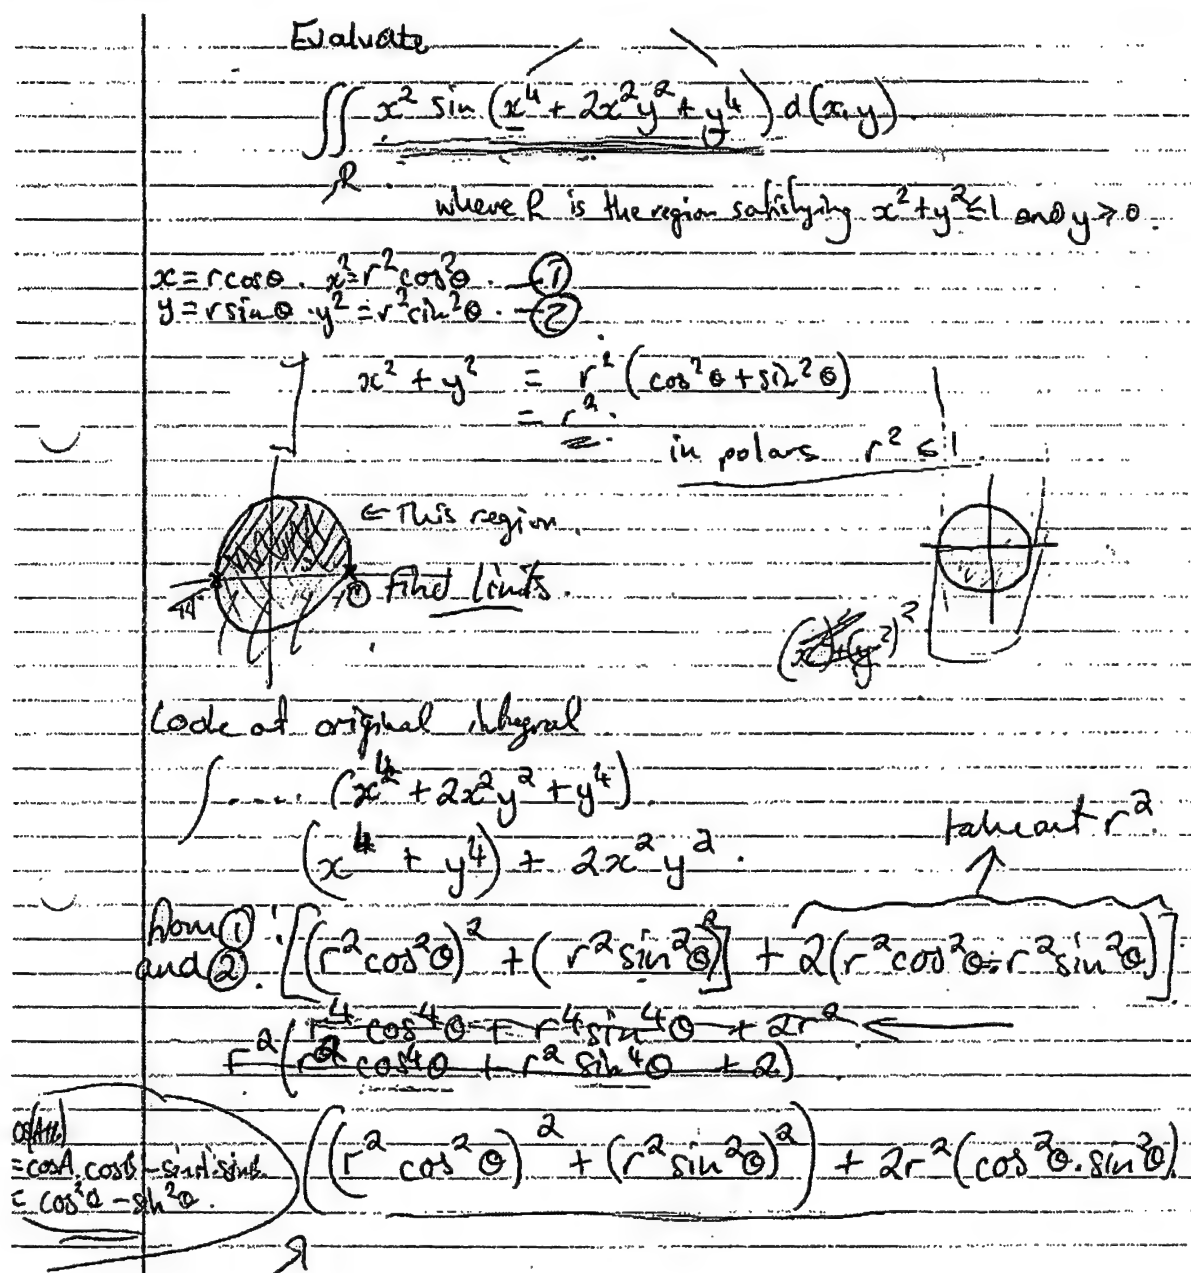 Evaluate
∬_R x² sin (x⁴ + 2x²y² + y⁴) d(x,y).
where R is the region satisfying x² + y² ≤ 1 and y ≥ 0.
x = r cos θ . x² = r² cos² θ . — ①
y = r sin θ . y² = r² sin² θ . — ②
x² + y² = r² (cos² θ + sin² θ)
= r².
in polars r² ≤ 1.
← This region.
Find limits.
(x²)+(y²)²
Look at original integral
∫ ..... (x⁴ + 2x²y² + y⁴).
(x⁴ + y⁴) + 2x²y².
take out r²
from ① :
and ②. [(r² cos² θ)² + (r² sin² θ)²] + 2(r² cos² θ . r² sin² θ)].
r⁴ cos⁴ θ + r⁴ sin⁴ θ + 2r² ←
r² (r² cos⁴ θ + r² sin⁴ θ + 2)
= cosA.cosB - sinA sinB
= cos² θ - sin² θ.
((r² cos² θ)² + (r² sin² θ)²) + 2r² (cos² θ . sin² θ).